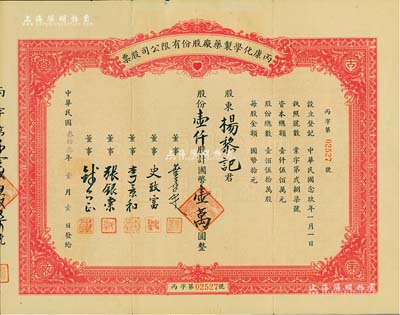 上海陽明拍賣
丙康化學製藥廠股份有限公司股票
丙字第02527號
設立登記 中華民國念玖年一月一日
執照號數 業字第貳捌柒號
資本總額 壹仟伍佰萬元
股份總數 壹佰伍拾萬股
每股金額 國幣拾元
股東 楊黎記 君
股份 壹仟 股計國幣 壹萬 圓整
董事
董事 史致富
董事 李亥和
董事 張銀棠
董事
中華民國 年 壹月壹日發給
丙字第02527號